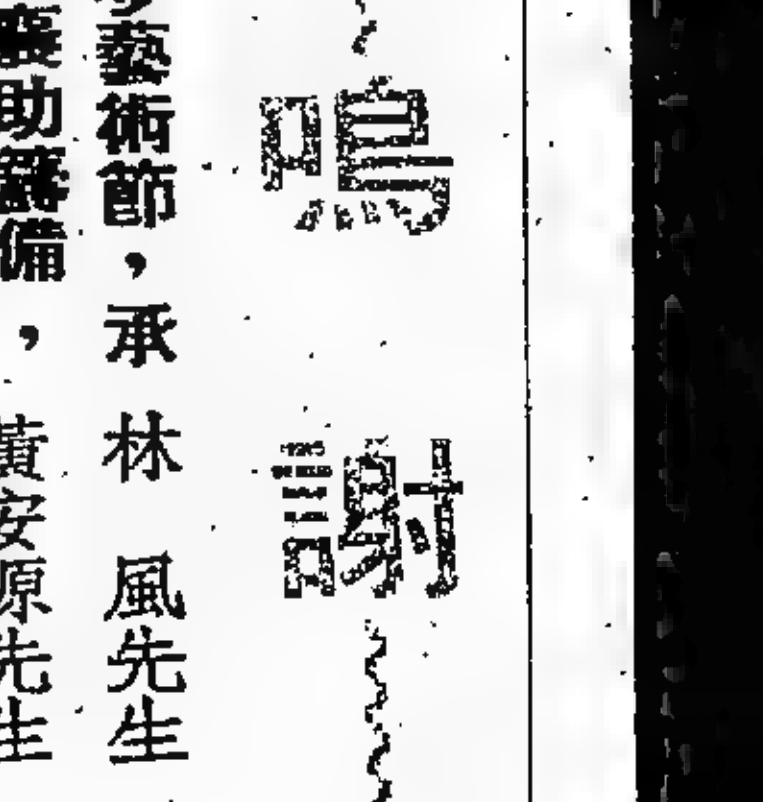 鳴謝
藝術節，承林風先生
助籌備，黃安源先生